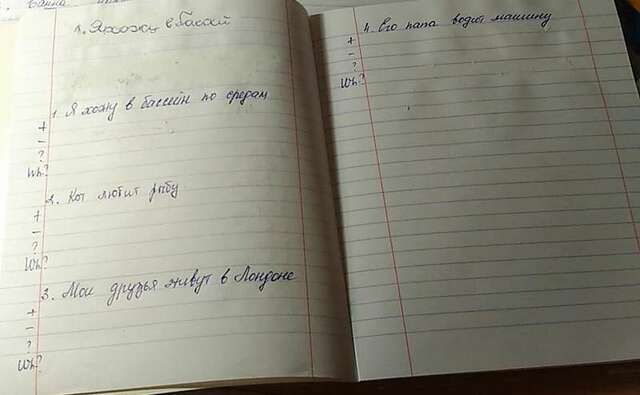 1. Я хожу в бассей
1. Я хожу в бассейн по средам
+
-
?
Wh?
2. Кот любит рыбу
+
-
?
Wh?
3. Мои друзья живут в Лондоне
+
-
?
Wh?
4. Его папа водит машину
+
-
?
Wh?